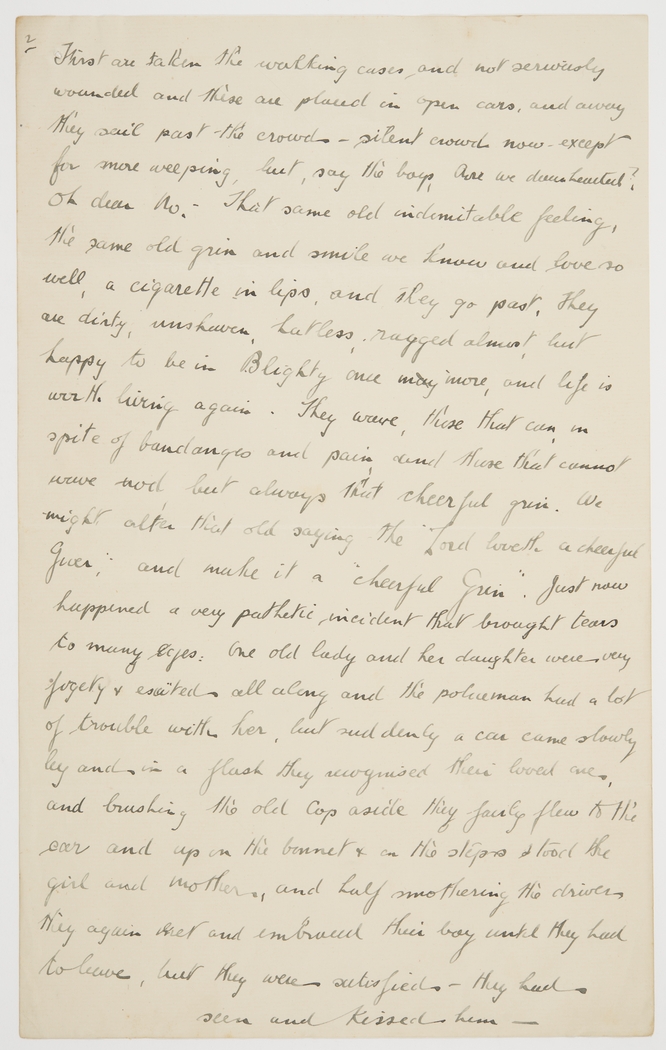 2/
First are taken the walking cases and not seriously
wounded and these are placed in open cars, and away
they sail past the crowd - silent crowd now - except
for more weeping, but, say the boys, Are we downhearted?
Oh dear No. - That same old indomitable feeling,
the same old grin and smile we know and love so
well, a cigarette in lips, and they go past. They
are dirty, unshaven, hatless, ragged almost, but
happy to be in Blighty once more, and life is
worth living again. They wave, those that can, in
spite of bandages and pain, and those that cannot
wave nod, but always that cheerful grin. We
might alter that old saying the "Lord loveth a cheerful
Giver," and make it a "cheerful Grin". Just now
happened a very pathetic incident that brought tears
to many eyes: One old lady and her daughter were very
fogety & exsited all along and the policeman had a lot
of trouble with her, but suddenly a car came slowly
by and in a flash they recognised their loved one,
and brushing the old Cop aside they fairly flew to the
car and up on the bonnet & on the steps stood the
girl and mother, and half smothering the driver
they again met and embraced their boy until they had
to leave, but they were satisfied - they had
seen and kissed him —